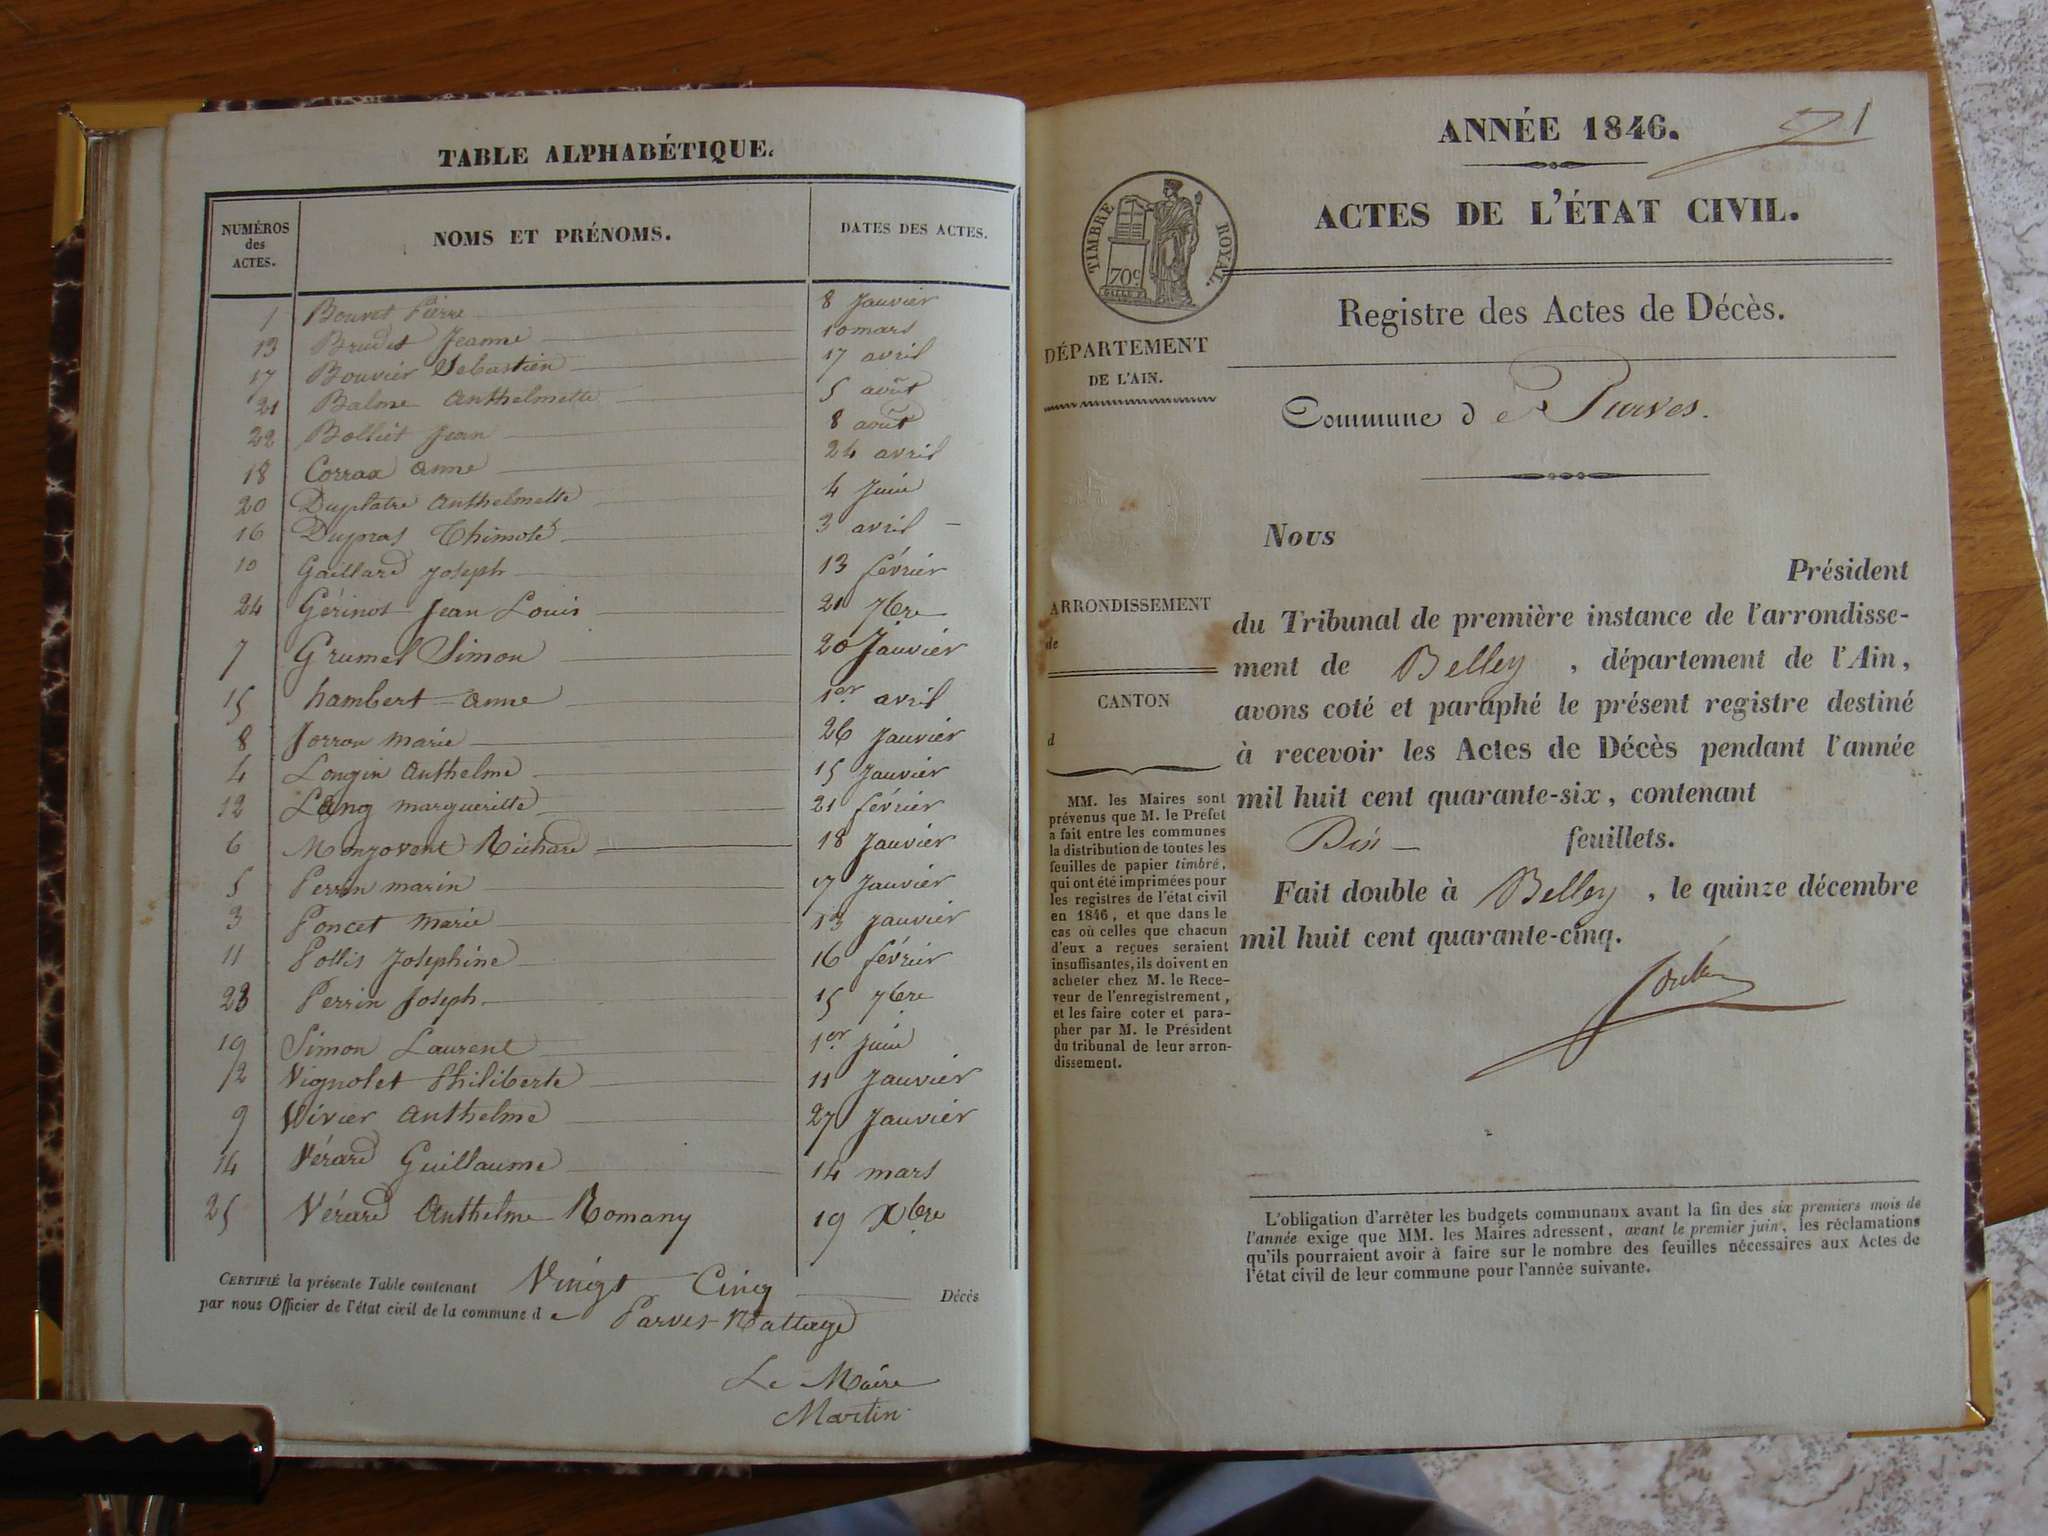 TABLE ALPHABÉTIQUE.
NUMÉROS des ACTES. NOMS ET PRÉNOMS. DATES DES ACTES.
1 Bouvet Pierre 8 Janvier
13 Brudet Jeanne 10 mars
17 Bouvier Sebastien 17 avril
21 Balme Anthelmette 5 août
22 Bolliet Jean 8 août
18 Corrax Anne 24 avril
20 Duplatre Anthelmette 4 Juin
16 Dupras Thimoté 3 avril
10 Gaillard Joseph 13 février
24 Gérinot Jean Louis 21 7bre
7 Grumel Simon 20 Janvier
15 hambert Anne 1er avril
8 Jorron marie 26 Janvier
4 Longin Anthelme 15 Janvier
12 Lang margueritte 21 février
6 Monjovent Richard 18 Janvier
5 Perrin marin 17 Janvier
3 Poncet marie 13 Janvier
11 Pollis Josephine 16 février
23 Perrin Joseph 15 7bre
19 Simon Laurent 1er Juin
2 Vignolet Philiberte 11 Janvier
9 Vivier Anthelme 27 Janvier
14 Vérard Guillaume 14 mars
25 Vérard Anthelme Romany 19 Xbre
CERTIFIÉ la présente Table contenant Vingt Cinq Décès
par nous Officier de l'état civil de la commune d e Parves Nattage
Le Maire
Martin
ANNÉE 1846.
71
ACTES DE L'ÉTAT CIVIL.
TIMBRE ROYAL.
70c
Registre des Actes de Décès.
DÉPARTEMENT
DE L'AIN.
Commune d e Parves.
Nous
Président
du Tribunal de première instance de l'arrondisse-
ment de Belley, département de l'Ain,
avons coté et paraphé le présent registre destiné
à recevoir les Actes de Décès pendant l'année
mil huit cent quarante-six, contenant
feuillets.
Fait double à Belley, le quinze décembre
mil huit cent quarante-cinq.
ARRONDISSEMENT
de
CANTON
d
MM. les Maires sont
prévenus que M. le Préfet
a fait entre les communes
la distribution de toutes les
feuilles de papier timbré,
qui ont été imprimées pour
les registres de l'état civil
en 1846, et que dans le
cas où celles que chacun
d'eux a reçues seraient
insuffisantes, ils doivent en
acheter chez M. le Rece-
veur de l'enregistrement,
et les faire coter et para-
pher par M. le Président
du tribunal de leur arron-
dissement.
L'obligation d'arrêter les budgets communaux avant la fin des six premiers mois de
l'année exige que MM. les Maires adressent, avant le premier juin, les réclamations
qu'ils pourraient avoir à faire sur le nombre des feuilles nécessaires aux Actes de
l'état civil de leur commune pour l'année suivante.